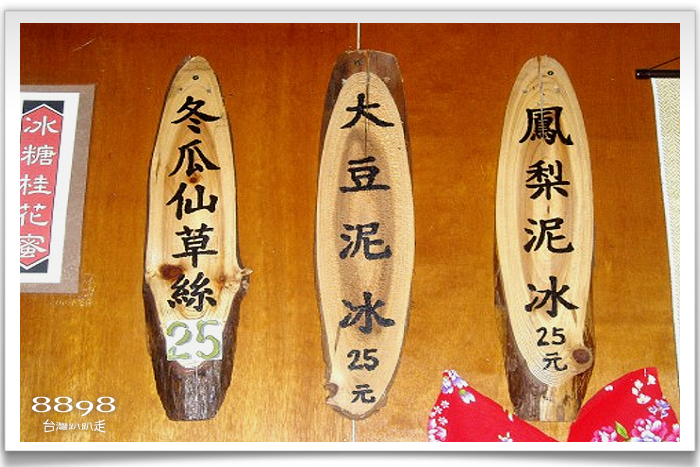 冰糖桂花蜜
冬瓜仙草絲
25
大豆泥冰
25元
鳳梨泥冰
25元
8898
台灣趴趴走